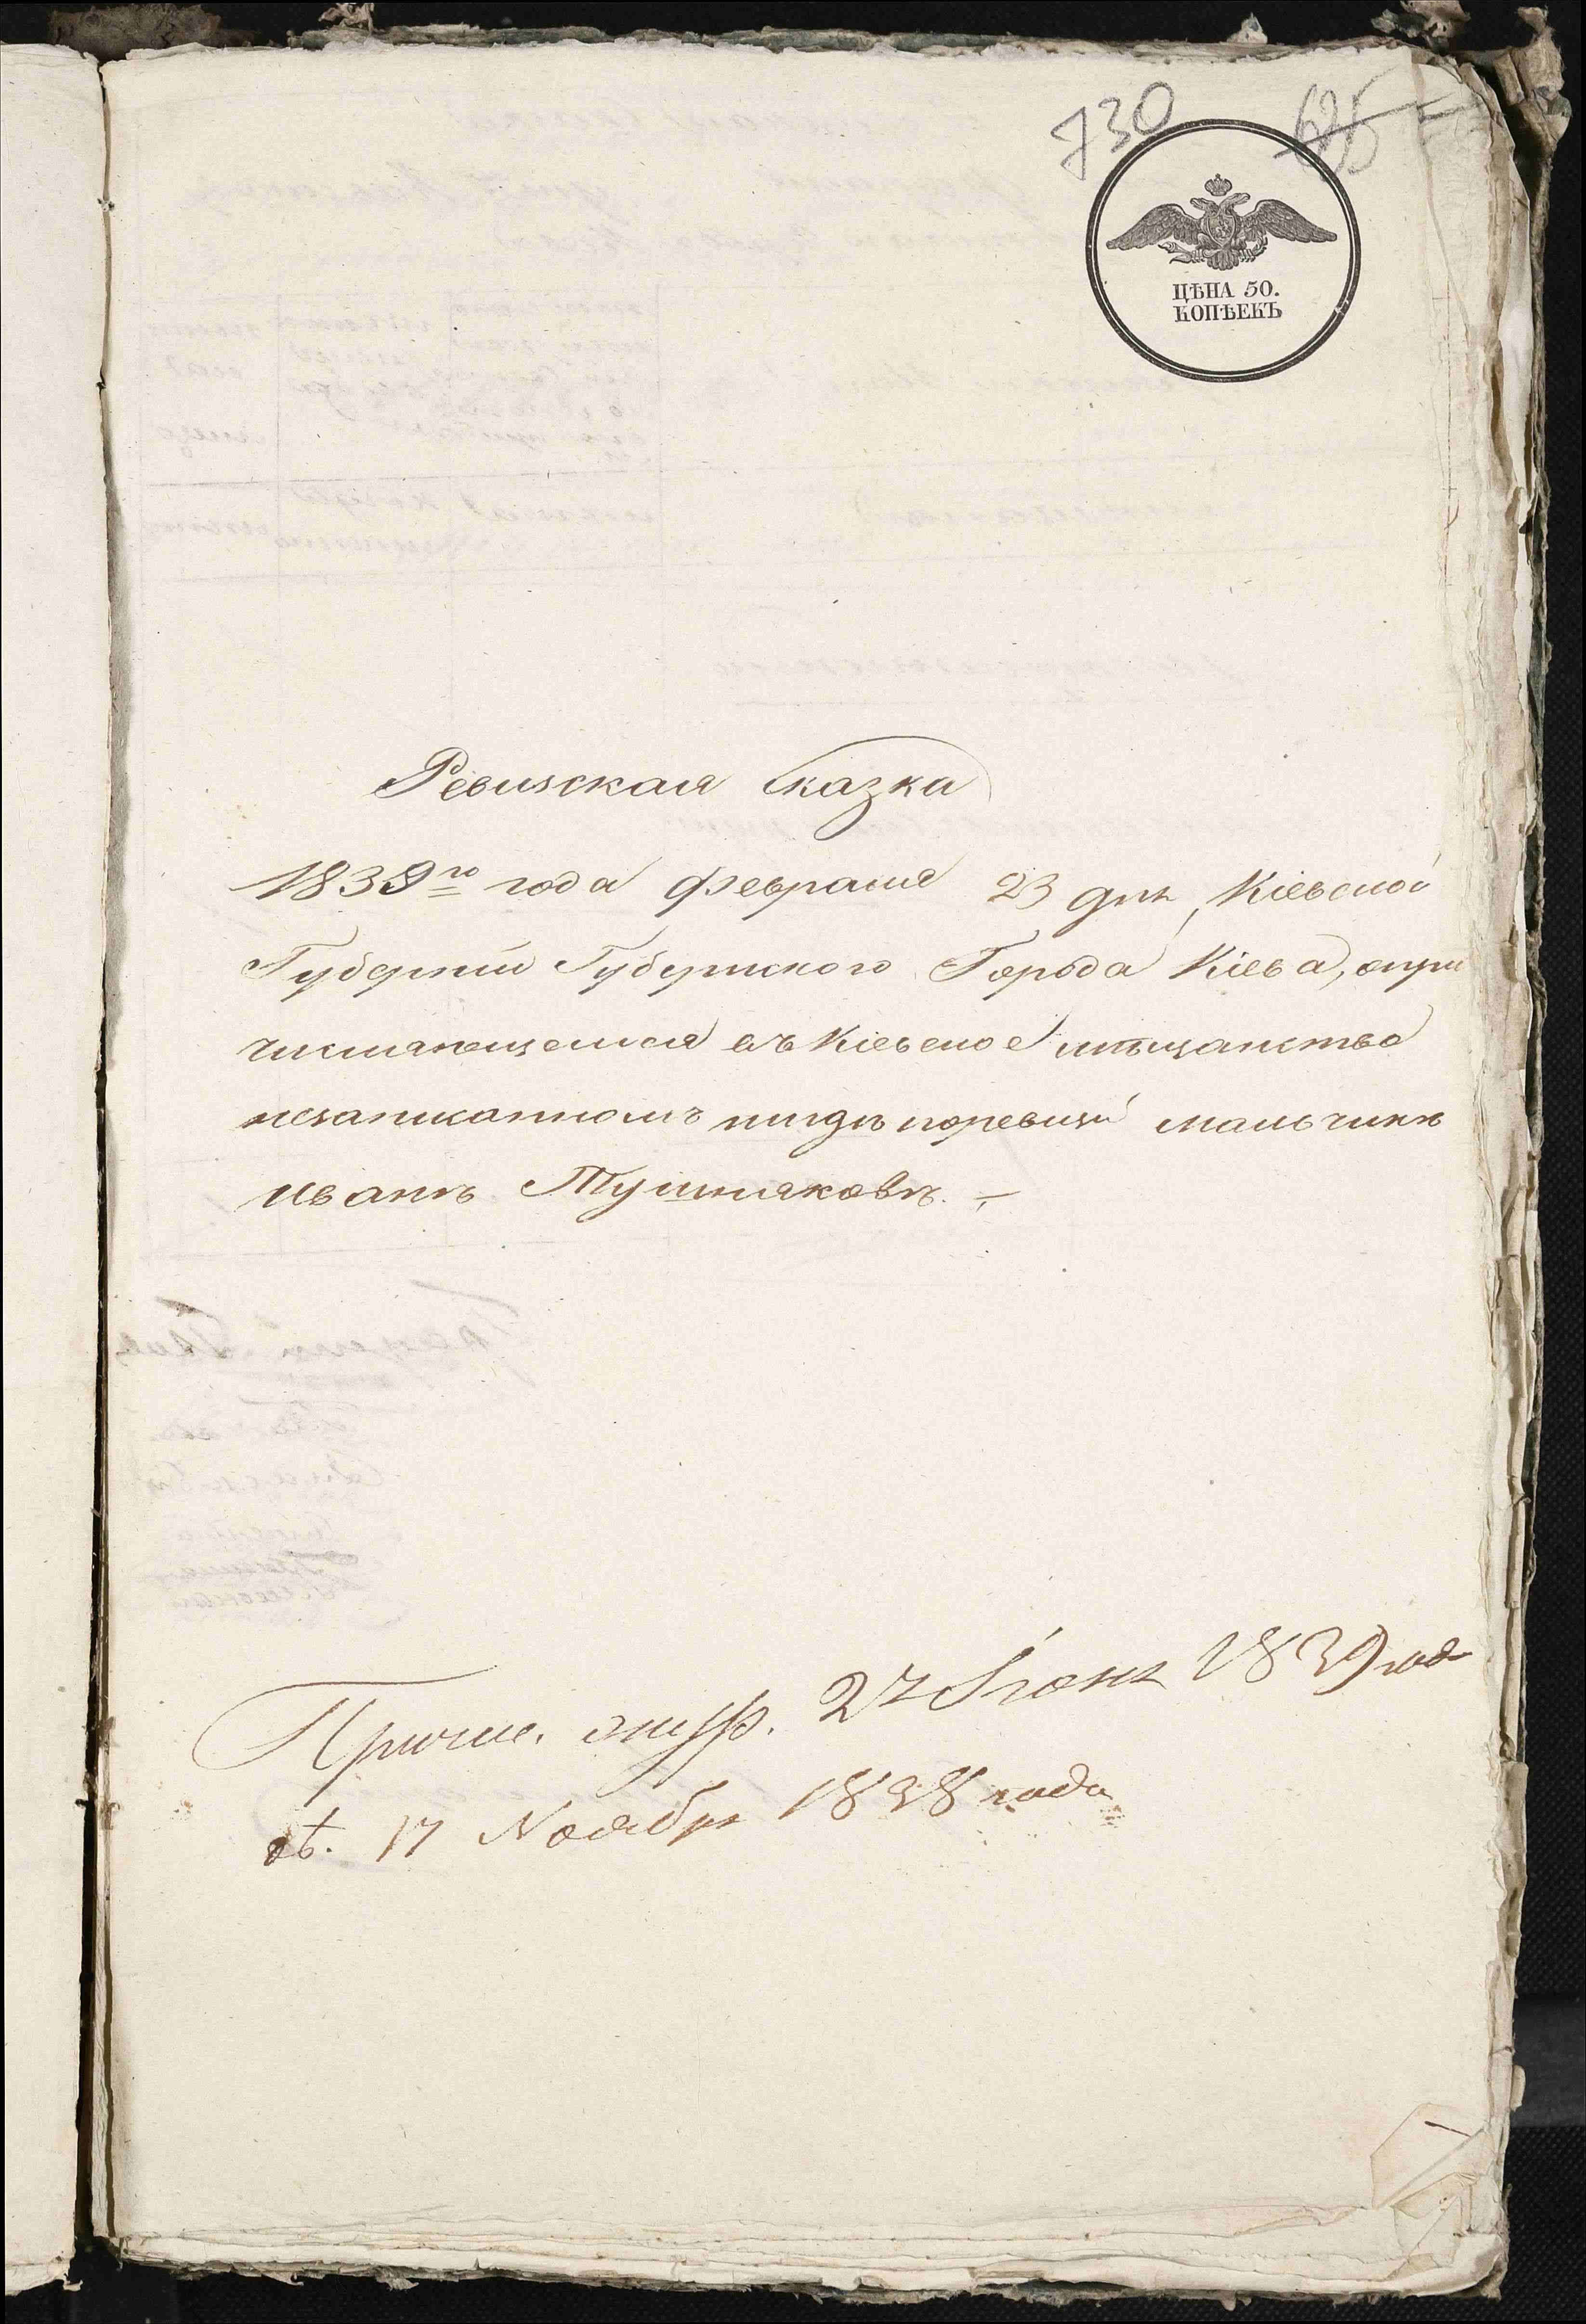 730
ЦѢНА 50.
КОПѢЕКЪ
Ревизская Сказка
1839го года февраля 23 дня, Кіевской
Губерніи Губернского Города Кіева, опри
числяющемся въ Кіевское мѣщанство
незаписанномъ нигдѣ поревизіи мальчикѣ
Иванѣ Тушняковѣ.
27 Іюня 1839 года
съ. 17 Ноября 1838 года